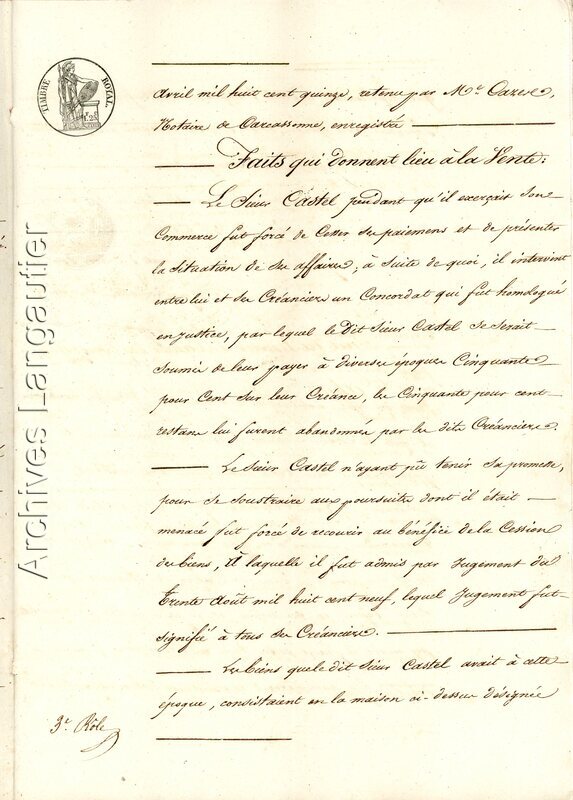 TIMBRE ROYAL
avril mil huit cent quinze, retenu par Mr. Cazes,
Notaire de Carcassonne, enregistré
Faits qui donnent lieu à la Vente:
Le Sieur Castel pendant qu'il exerçait son
Commerce fut forcé de Cesser ses paiemens et de présenter
la situation de ses affaires, à suite de quoi, il intervint
entre lui et ses Créanciers un Concordat qui fut homologué
en justice, par lequel le dit Sieur Castel se serait
soumis de leur payer à diverses époques Cinquante
pour Cent sur leur Créance, les Cinquante pour cent
restans lui furent abandonnés par les dits Créanciers.
Le Sieur Castel n'ayant pû tenir sa promesse,
pour se soustraire aux poursuites dont il était
menacé fut forcé de recourir au bénéfice de la Cession
des biens, à laquelle il fut admis par Jugement du
trente Août mil huit cent neuf, lequel Jugement fut
signifié à tous ses Créanciers.
Les biens que le dit Sieur Castel avait à cette
époque, consistaient en la maison ci-dessus désignée
3e. Rôle
Archives Langautier